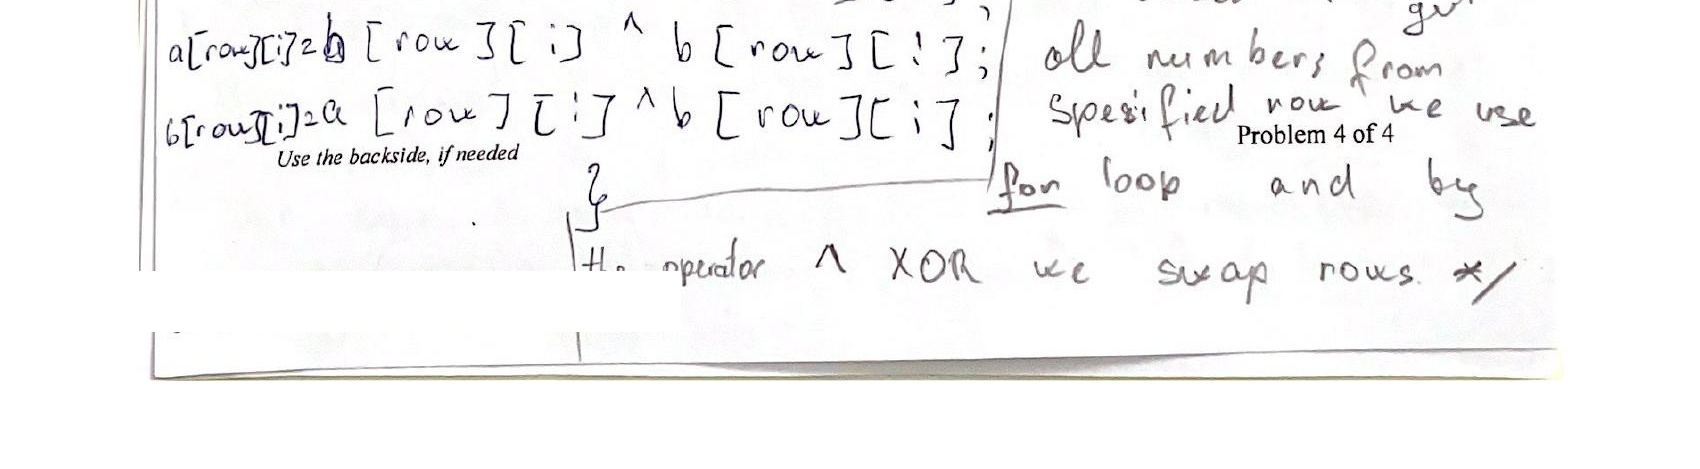 a[row][i]=b[row][i] ^ b[row][i];
b[row][i]=a[row][i] ^ b[row][i];
Use the backside, if needed
}
all numbers from
spesified row we use
Problem 4 of 4
for loop and by
operator ^ XOR we swap rows. */